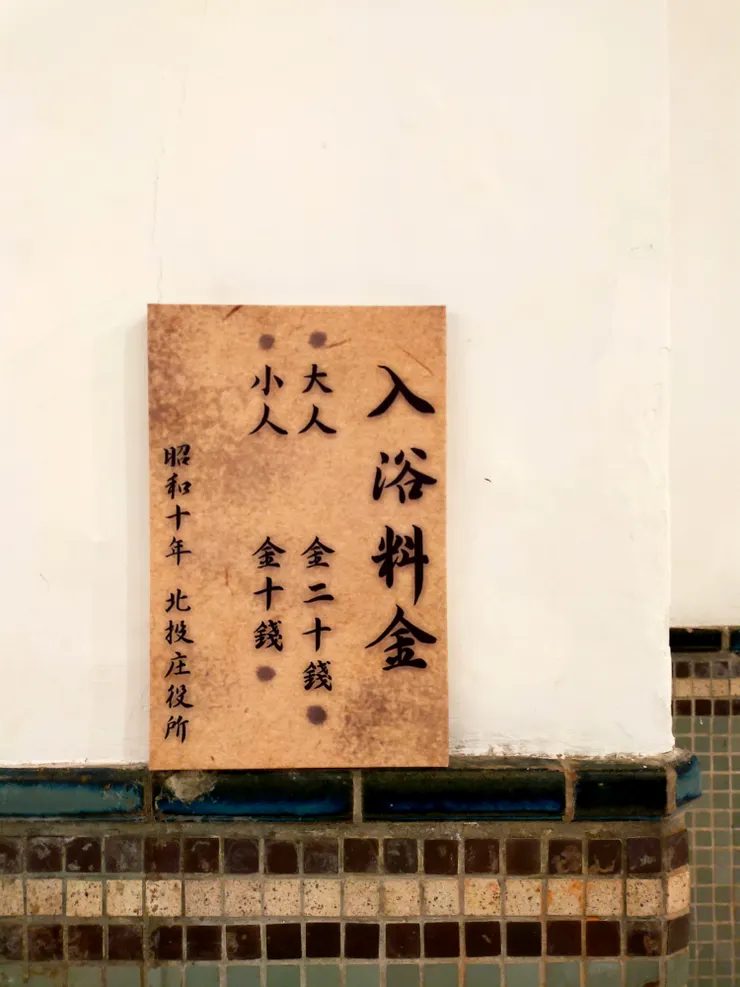 入浴料金
大人 金二十錢
小人 金十錢
昭和十年 北投庄役所